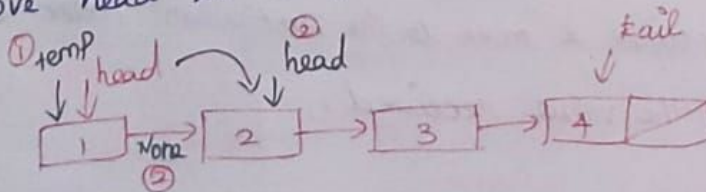 head
① temp head ② head tail
1 None 2 3 4
②